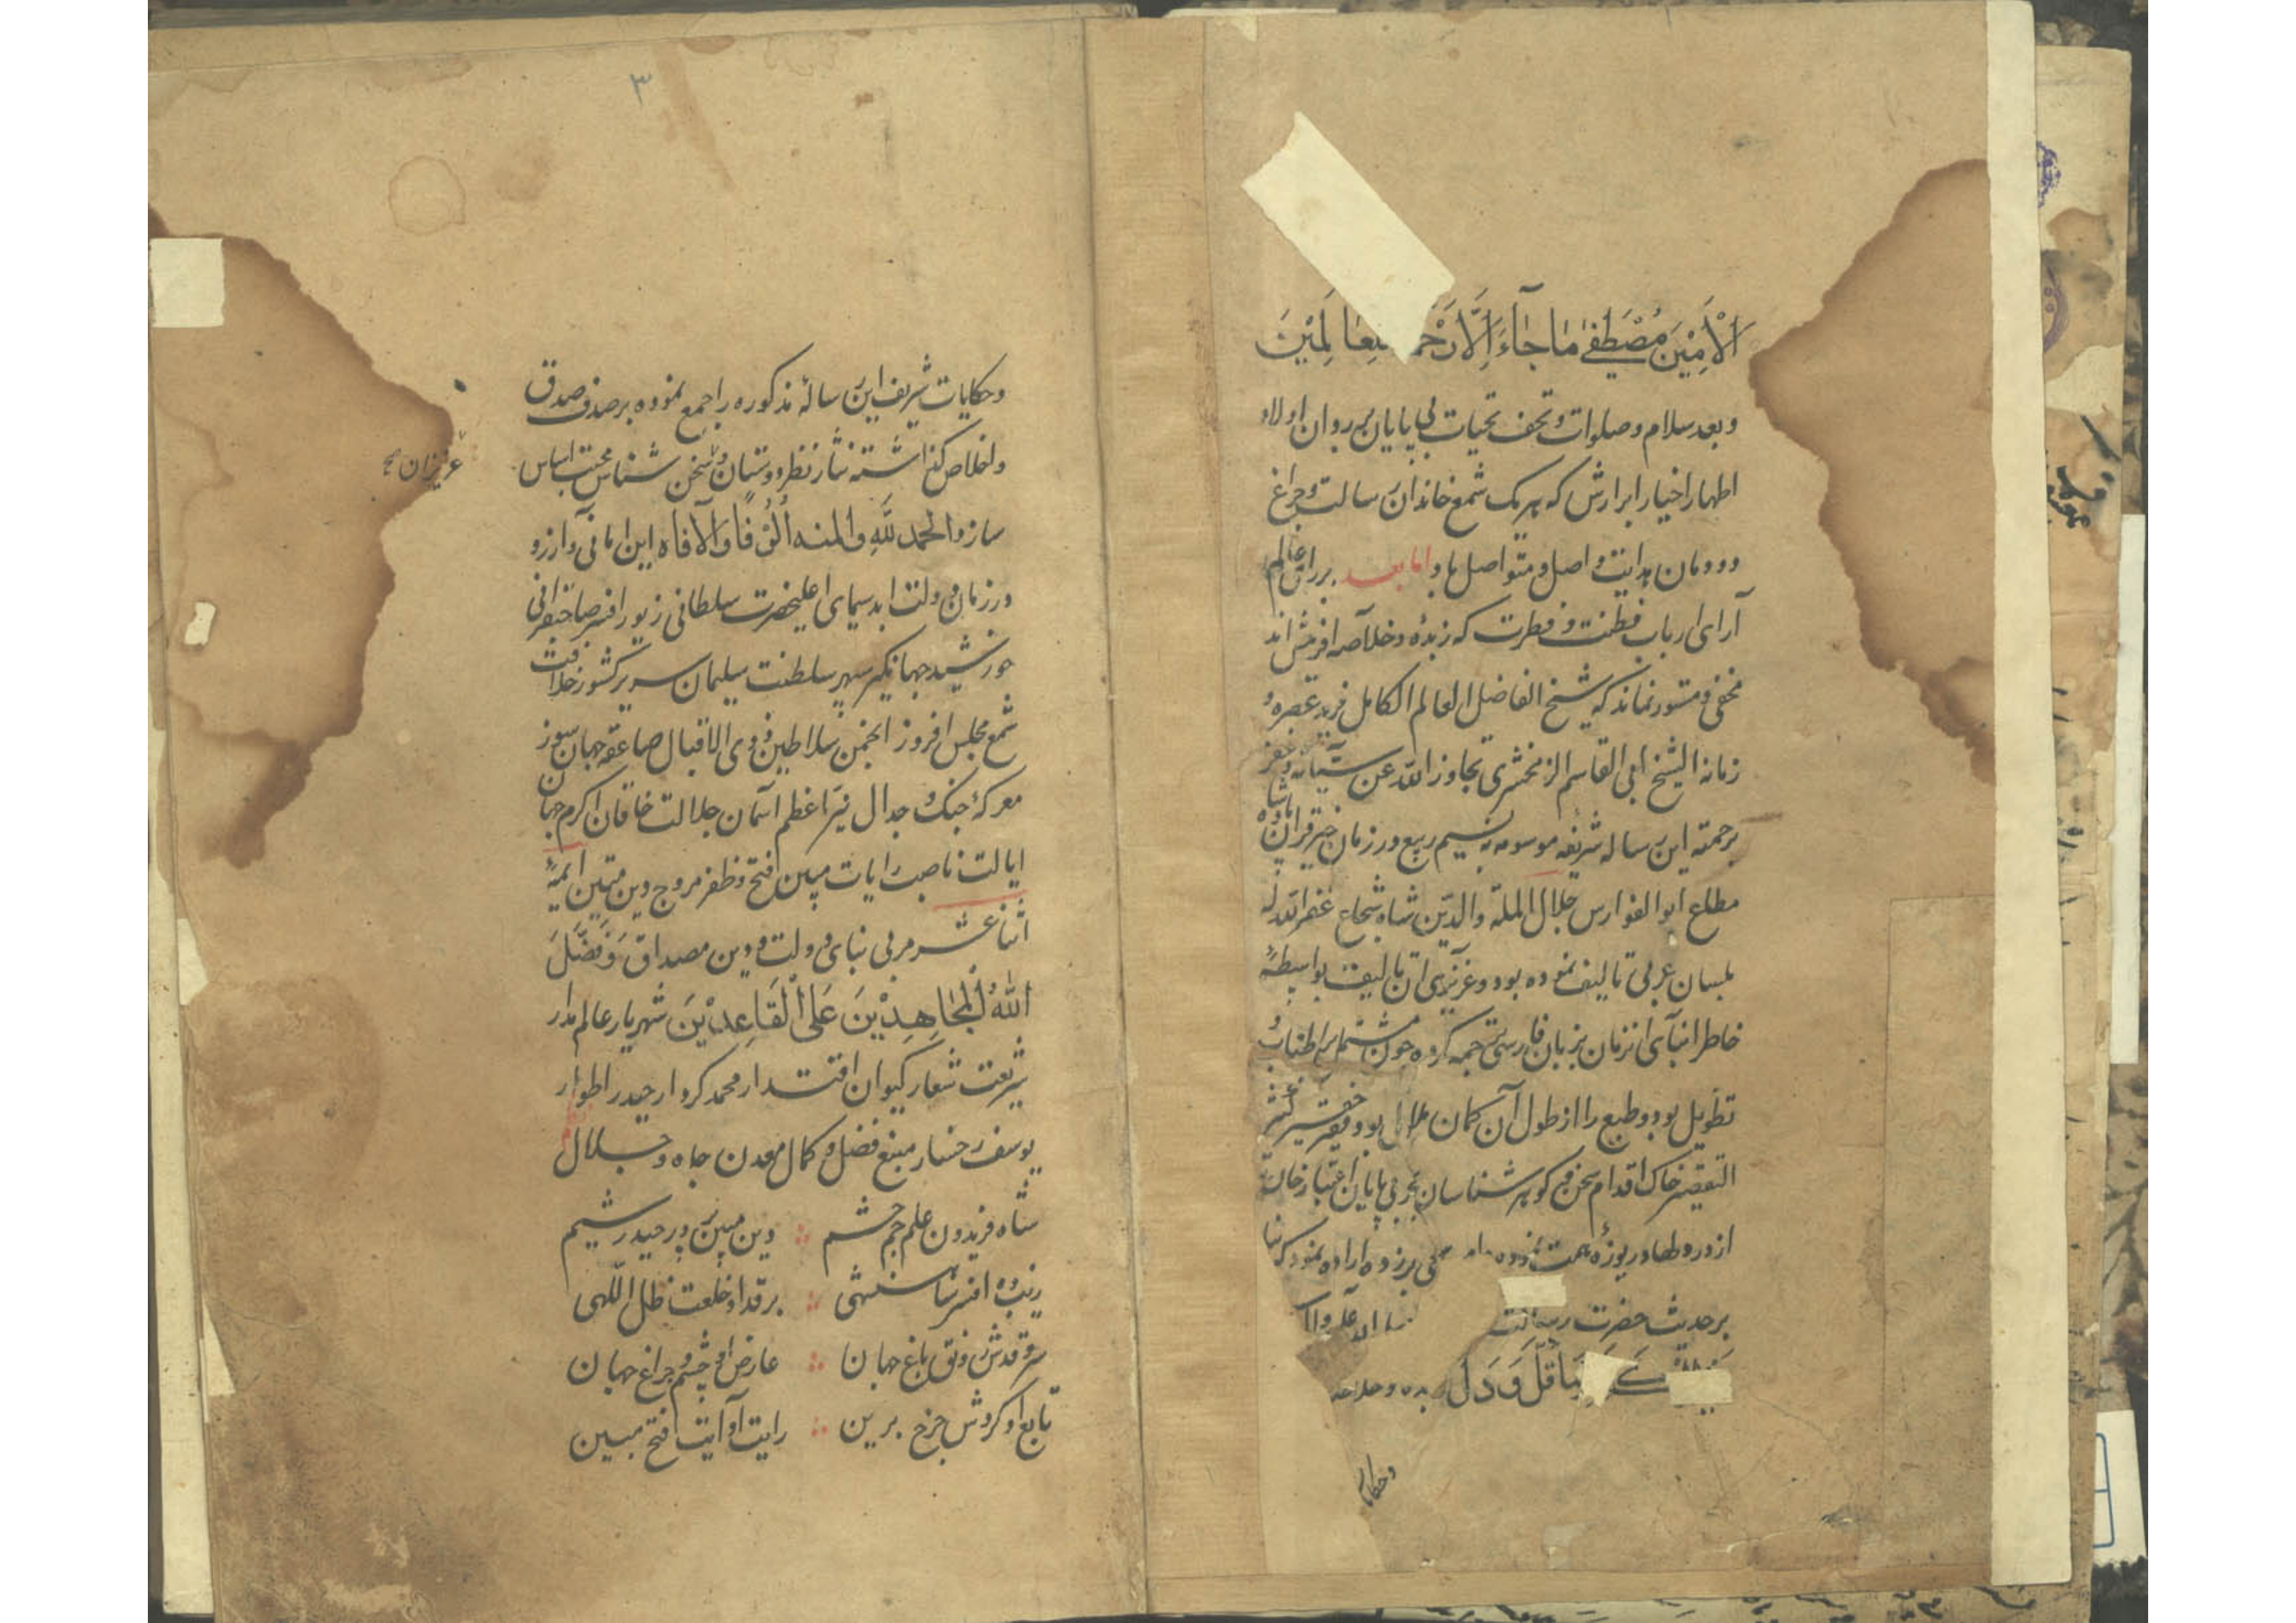 اَلْاَمِیْنَ مُصْطَفٰے مَا جَآءَ اِلَّا رَحْمَ لِّلْعَالَمِیْنَ
وبعد سلام وصلوات و تحف تحیات بی پایان بر روان اولاد
اطهار اخیار ابرارش که هریک شمع خاندان رسالت و چراغ
دودمان هدایت واصل و متواصل باد اما بعد بر رای عالم
آرای ارباب فطنت و فطرت که زبده و خلاصه افرینش اند
مخفی و مستور نماند که شیخ الفاضل العالم الکامل فرید عصره و
زمانه الشیخ ابی القاسم الزمخشری تجاوز الله عن سیئاته و غفر
برحمته این رساله شریفه موسومه به نسیم ربیع در زمان خیر قران پادشاه
مطاع ابو الفوارس جلال الملة والدین شاه شجاع غفر الله له
بلسان عربی تالیف نموده بود و عزیزی ان تالیف بواسطهٔ
خاطر ابنآی انزمان بزبان فارسی ترجمه کرده چون مشتمل بر اطناب و
تطویل بود و طبع را از طول آن کمان ملال بود فقیر حقیر کثیر
التقصیر خاک اقدام سخن گوهر شناسان بحر بی پایان
از در دریوزهٔ همت نموده اراده نمود که بنا
بر حدیث حضرت رسالت وآله
مَا قَلَّ وَ دَلَّ
وحکایات
۳
وحکایات شریف این رسالهٔ مذکوره را جمع نموده بر صدف صدق
واخلاص گذاشته نثار نظر دوستان و سخن شناس محبت اساس
عزیزان صح
سازد الحمد لله والمنه اُلُوْفًا وَ الآفاه این امانی و آرزو
در زمان دولت ابد سیمای اعلیحضرت سلطانی زیور افسر صاحبقرانی
خورشید جهانگیر سپهر سلطنت سلیمان سریر کشور خلافت
شمع مجلس افروز انجمن سلاطین ذوی الاقبال صاعقه جهان سوز
معرکهٔ جنگ و جدال نیر اعظم آسمان جلالت خاقان اکرم جهان
ایالت ناصب رایات مبین فتح و ظفر مروج دین متین ایمهٔ
اثنا عشر مربی بنای دولت و دین مصداق وَ فَضَّلَ
اللهُ الْمُجَاهِدِیْنَ عَلَی الْقَاعِدِیْنَ شهریار عالم مدار
شریعت شعار کیوان اقتدار محمد کردار حیدر اطوار
یوسف رخسار منبع فضل و کمال معدن جاه و جلال
شاه فریدون علم جم حشم ؞ دین مبین پرور حیدر شیم
زیب ده افسر شاهنشهی ؞ بر قد او خلعت ظل اللهی
سرو قدش رونق باغ جهان ؞ عارض او چشم و چراغ جهان
تابع او گردش چرخ برین ؞ رایت او آیت فتح مبین